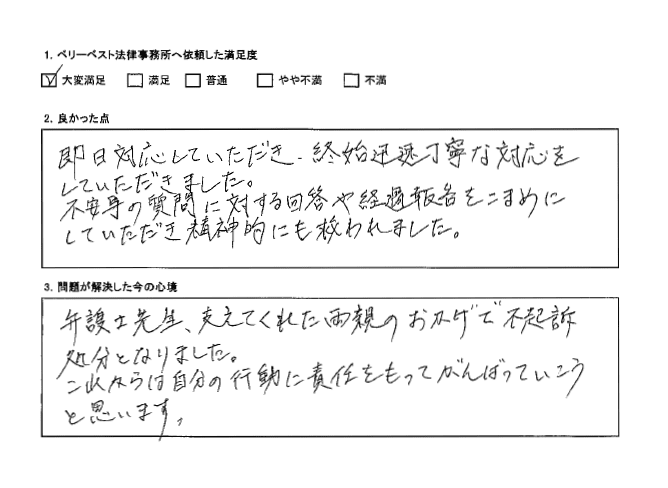 1. ベリーベスト法律事務所へ依頼した満足度
☑ 大変満足 □ 満足 □ 普通 □ やや不満 □ 不満
2. 良かった点
即日対応していただき、終始迅速丁寧な対応を
していただきました。
不安事の質問に対する回答や経過報告をこまめに
していただき精神的にも救われました。
3. 問題が解決した今の心境
弁護士先生、支えてくれた両親のおかげで不起訴
処分となりました。
これからは自分の行動に責任をもってがんばっていこう
と思います。